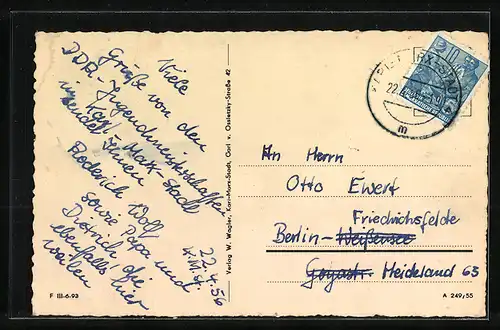 Viele
Grüße von den
DDR-Jugendmeisterschaften
Karl-Marx-Stadt
sendet Ihnen
Roderich Wolf
sowie Papa und
Dietrich, die
ebenfalls hier
weilen
22.4.56
K.M.St.
Verlag W. Wagler, Karl-Marx-Stadt, Carl v. Ossietzky-Straße 42
10
22.
m
An Herrn
Otto Ewert
Friedrichsfelde
Berlin-Weißensee
Goyastr. Heideland 63
F III-6-93
A 249/55